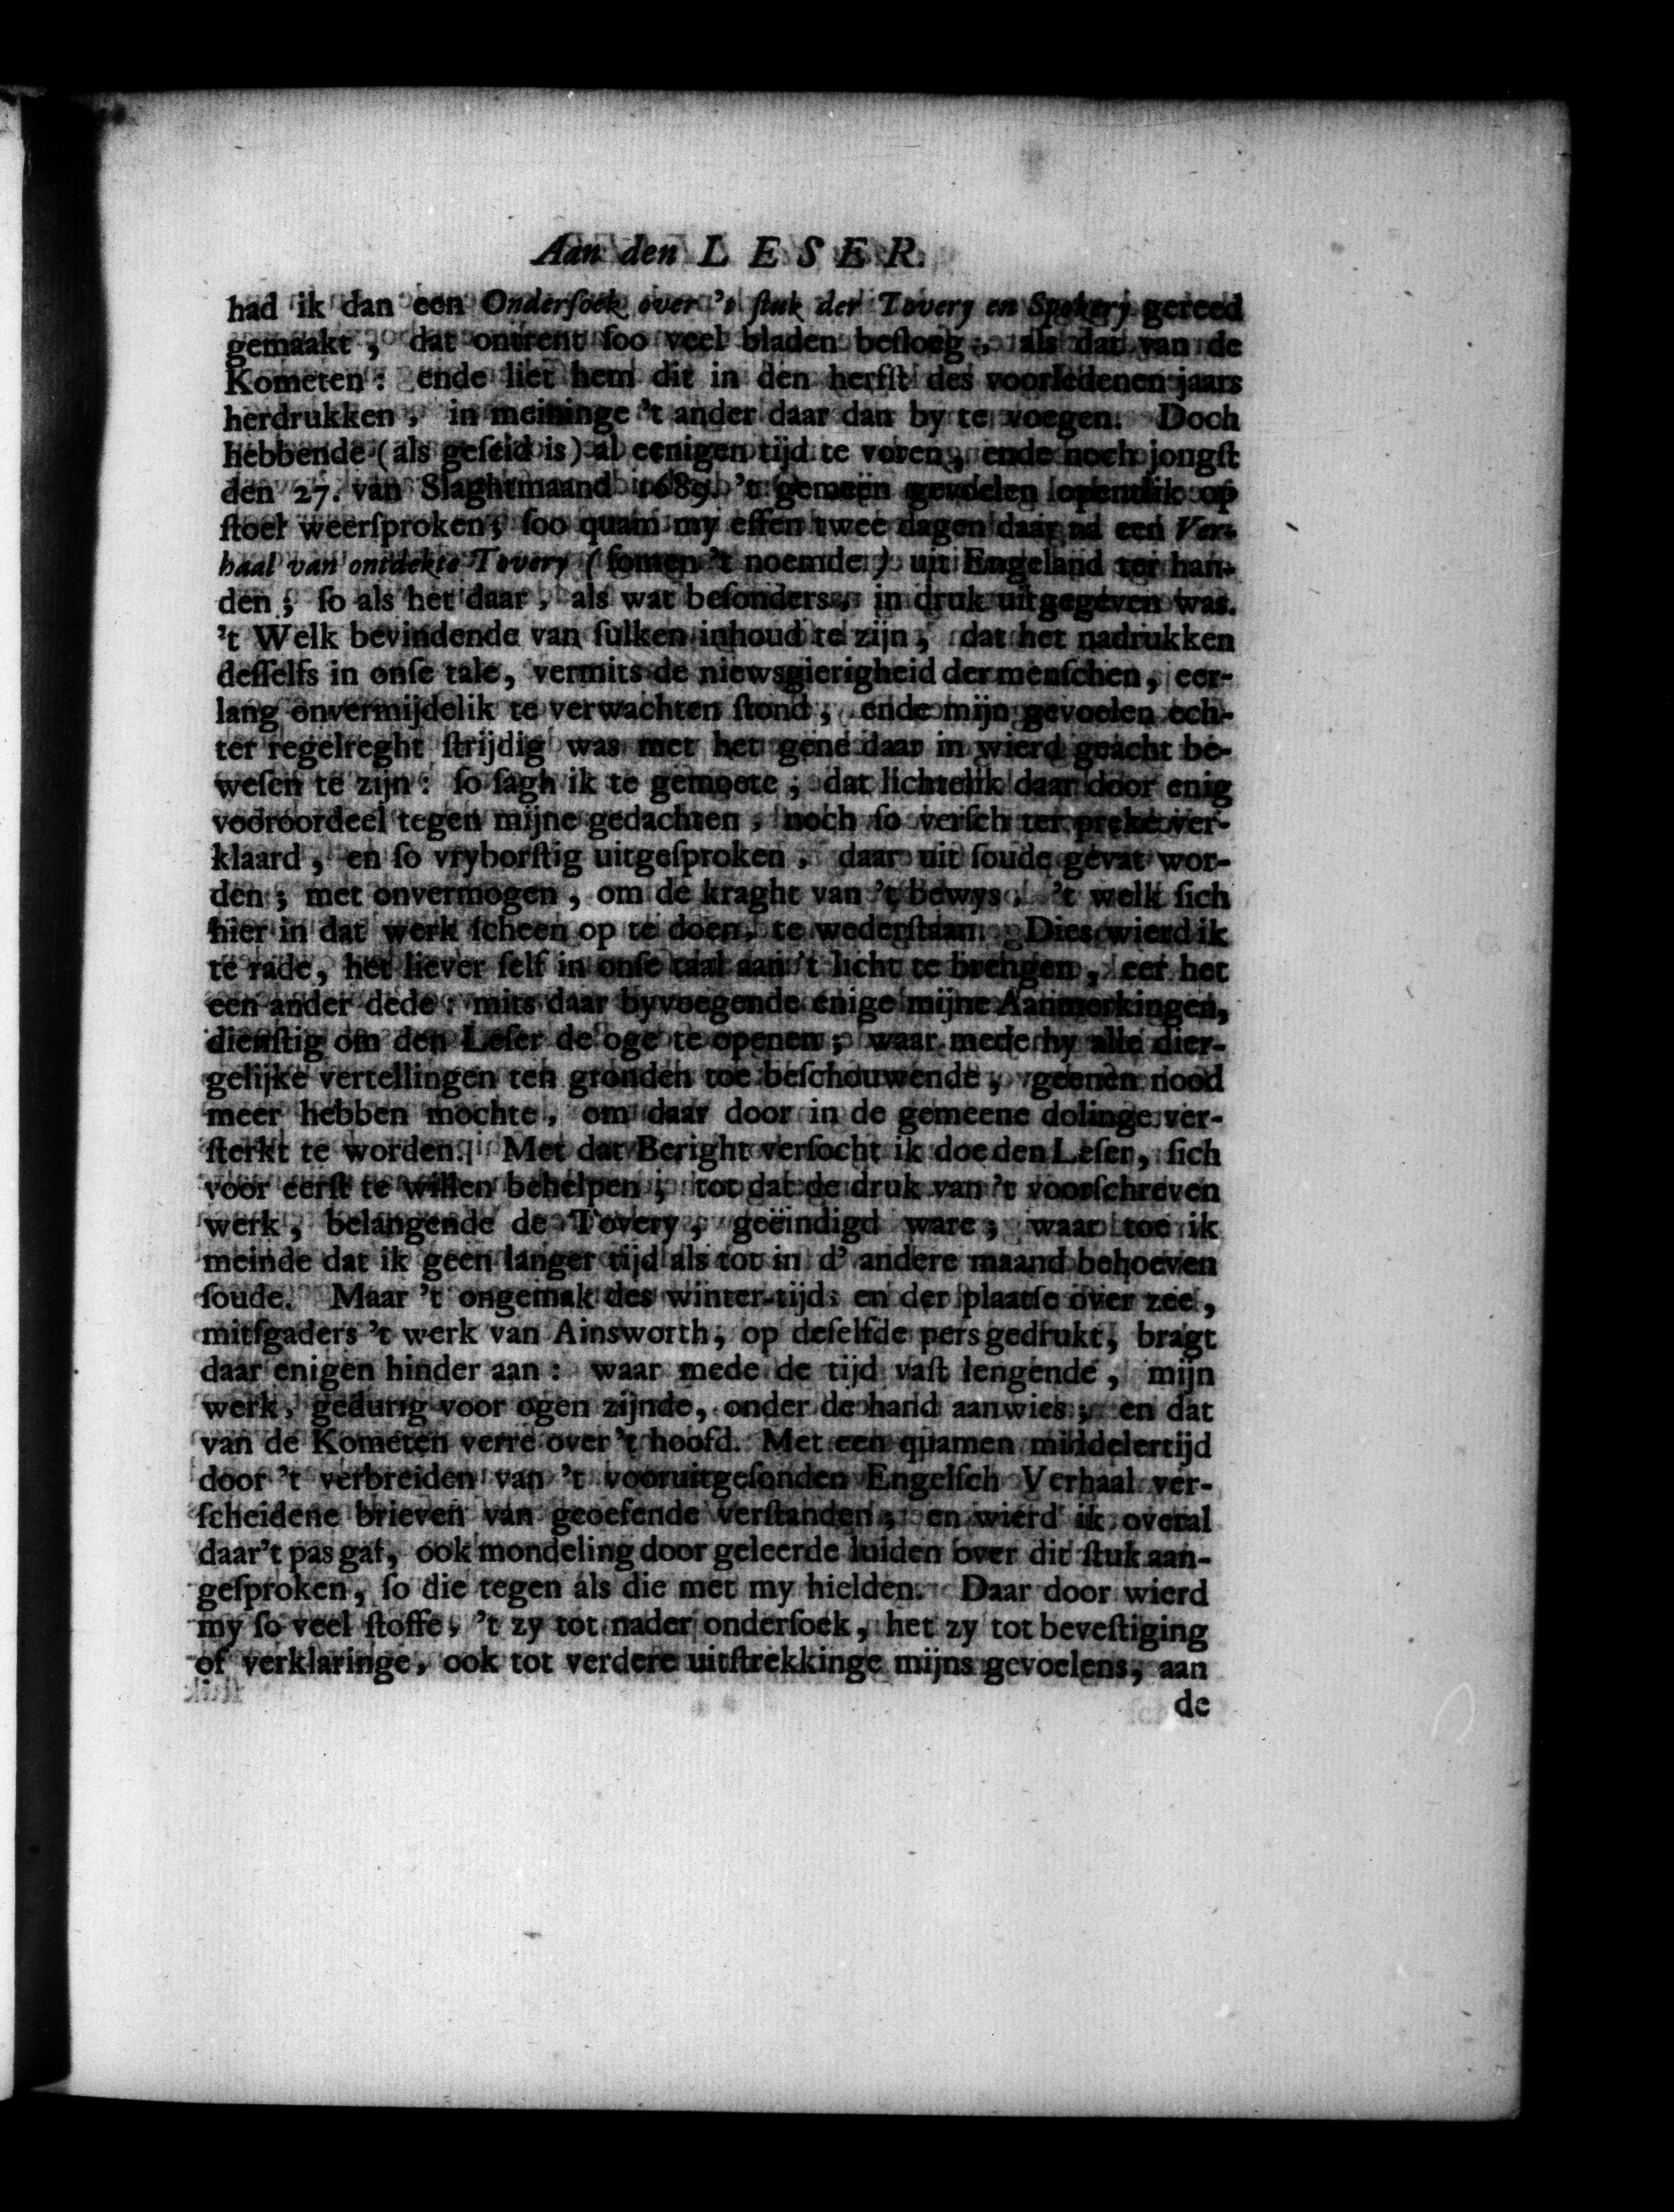 Aan den LESER.
had ik dan een Onderſoek over 't ſtuk der Tovery en Spokery gereed
gemaakt, dat ontrent ſoo veel bladen beſloeg, als dat van de
Kometen: ende liet hem dit in den herfſt des voorledenen jaars
herdrukken, in meininge 't ander daar dan by te voegen. Doch
hebbende (als geſeid is) al eenigen tijd te voren, ende noch jongſt
den 27. van Slaghtmaand 1689. 't gemeen gevoelen opentlik op
ſtoel weerſproken; ſoo quam my effen twee dagen daar na een Ver-
haal van ontdekte Tovery (ſomen 't noemde) uit Engeland ter han-
den; ſo als het daar, als wat beſonders, in druk uitgegeven was.
't Welk bevindende van ſulken inhoud te zijn, dat het nadrukken
deſſelfs in onſe tale, vermits de niewsgierigheid der menſchen, eer-
lang onvermijdelik te verwachten ſtond, ende mijn gevoelen ech-
ter regelreght ſtrijdig was met het gene daar in wierd geacht be-
weſen te zijn: ſo ſagh ik te gemoete; dat lichtelik daar door enig
vooroordeel tegen mijne gedachten, noch ſo verſch ter preke ver-
klaard, en ſo vryborſtig uitgeſproken, daar uit ſoude gevat wor-
den; met onvermogen, om de kraght van 't bewys, 't welk ſich
hier in dat werk ſcheen op te doen, te wederſtaan. Dies wierd ik
te rade, het liever ſelf in onſe taal aan 't licht te brengen, eer het
een ander dede: mits daar byvoegende enige mijne Aanmerkingen,
dienſtig om den Leſer de oge te openen; waar mede hy alle dier-
gelijke vertellingen ten gronden toe beſchouwende, geenen nood
meer hebben mochte, om daar door in de gemeene dolinge ver-
ſterkt te worden. Met dat Beright verſocht ik doe den Leſer, ſich
voor eerſt te willen behelpen; tot dat de druk van 't voorſchreven
werk, belangende de Tovery, geëindigd ware; waar toe ik
meinde dat ik geen langer tijd als tot in d' andere maand behoeven
ſoude. Maar 't ongemak des winter-tijds en der plaatſe over zee,
mitſgaders 't werk van Ainsworth, op deſelfde pers gedrukt, bragt
daar enigen hinder aan: waar mede de tijd vaſt lengende, mijn
werk, gedurig voor ogen zijnde, onder de hand aanwies; en dat
van de Kometen verre over 't hoofd. Met een quamen middelertijd
door 't verbreiden van 't vooruitgeſonden Engelſch Verhaal ver-
ſcheidene brieven van geoefende verſtanden; en wierd ik overal
daar 't pas gaf, ook mondeling door geleerde luiden over dit ſtuk aan-
geſproken, ſo die tegen als die met my hielden. Daar door wierd
my ſo veel ſtoffe, 't zy tot nader onderſoek, het zy tot beveſtiging
of verklaringe, ook tot verdere uitſtrekkinge mijns gevoelens, aan
de